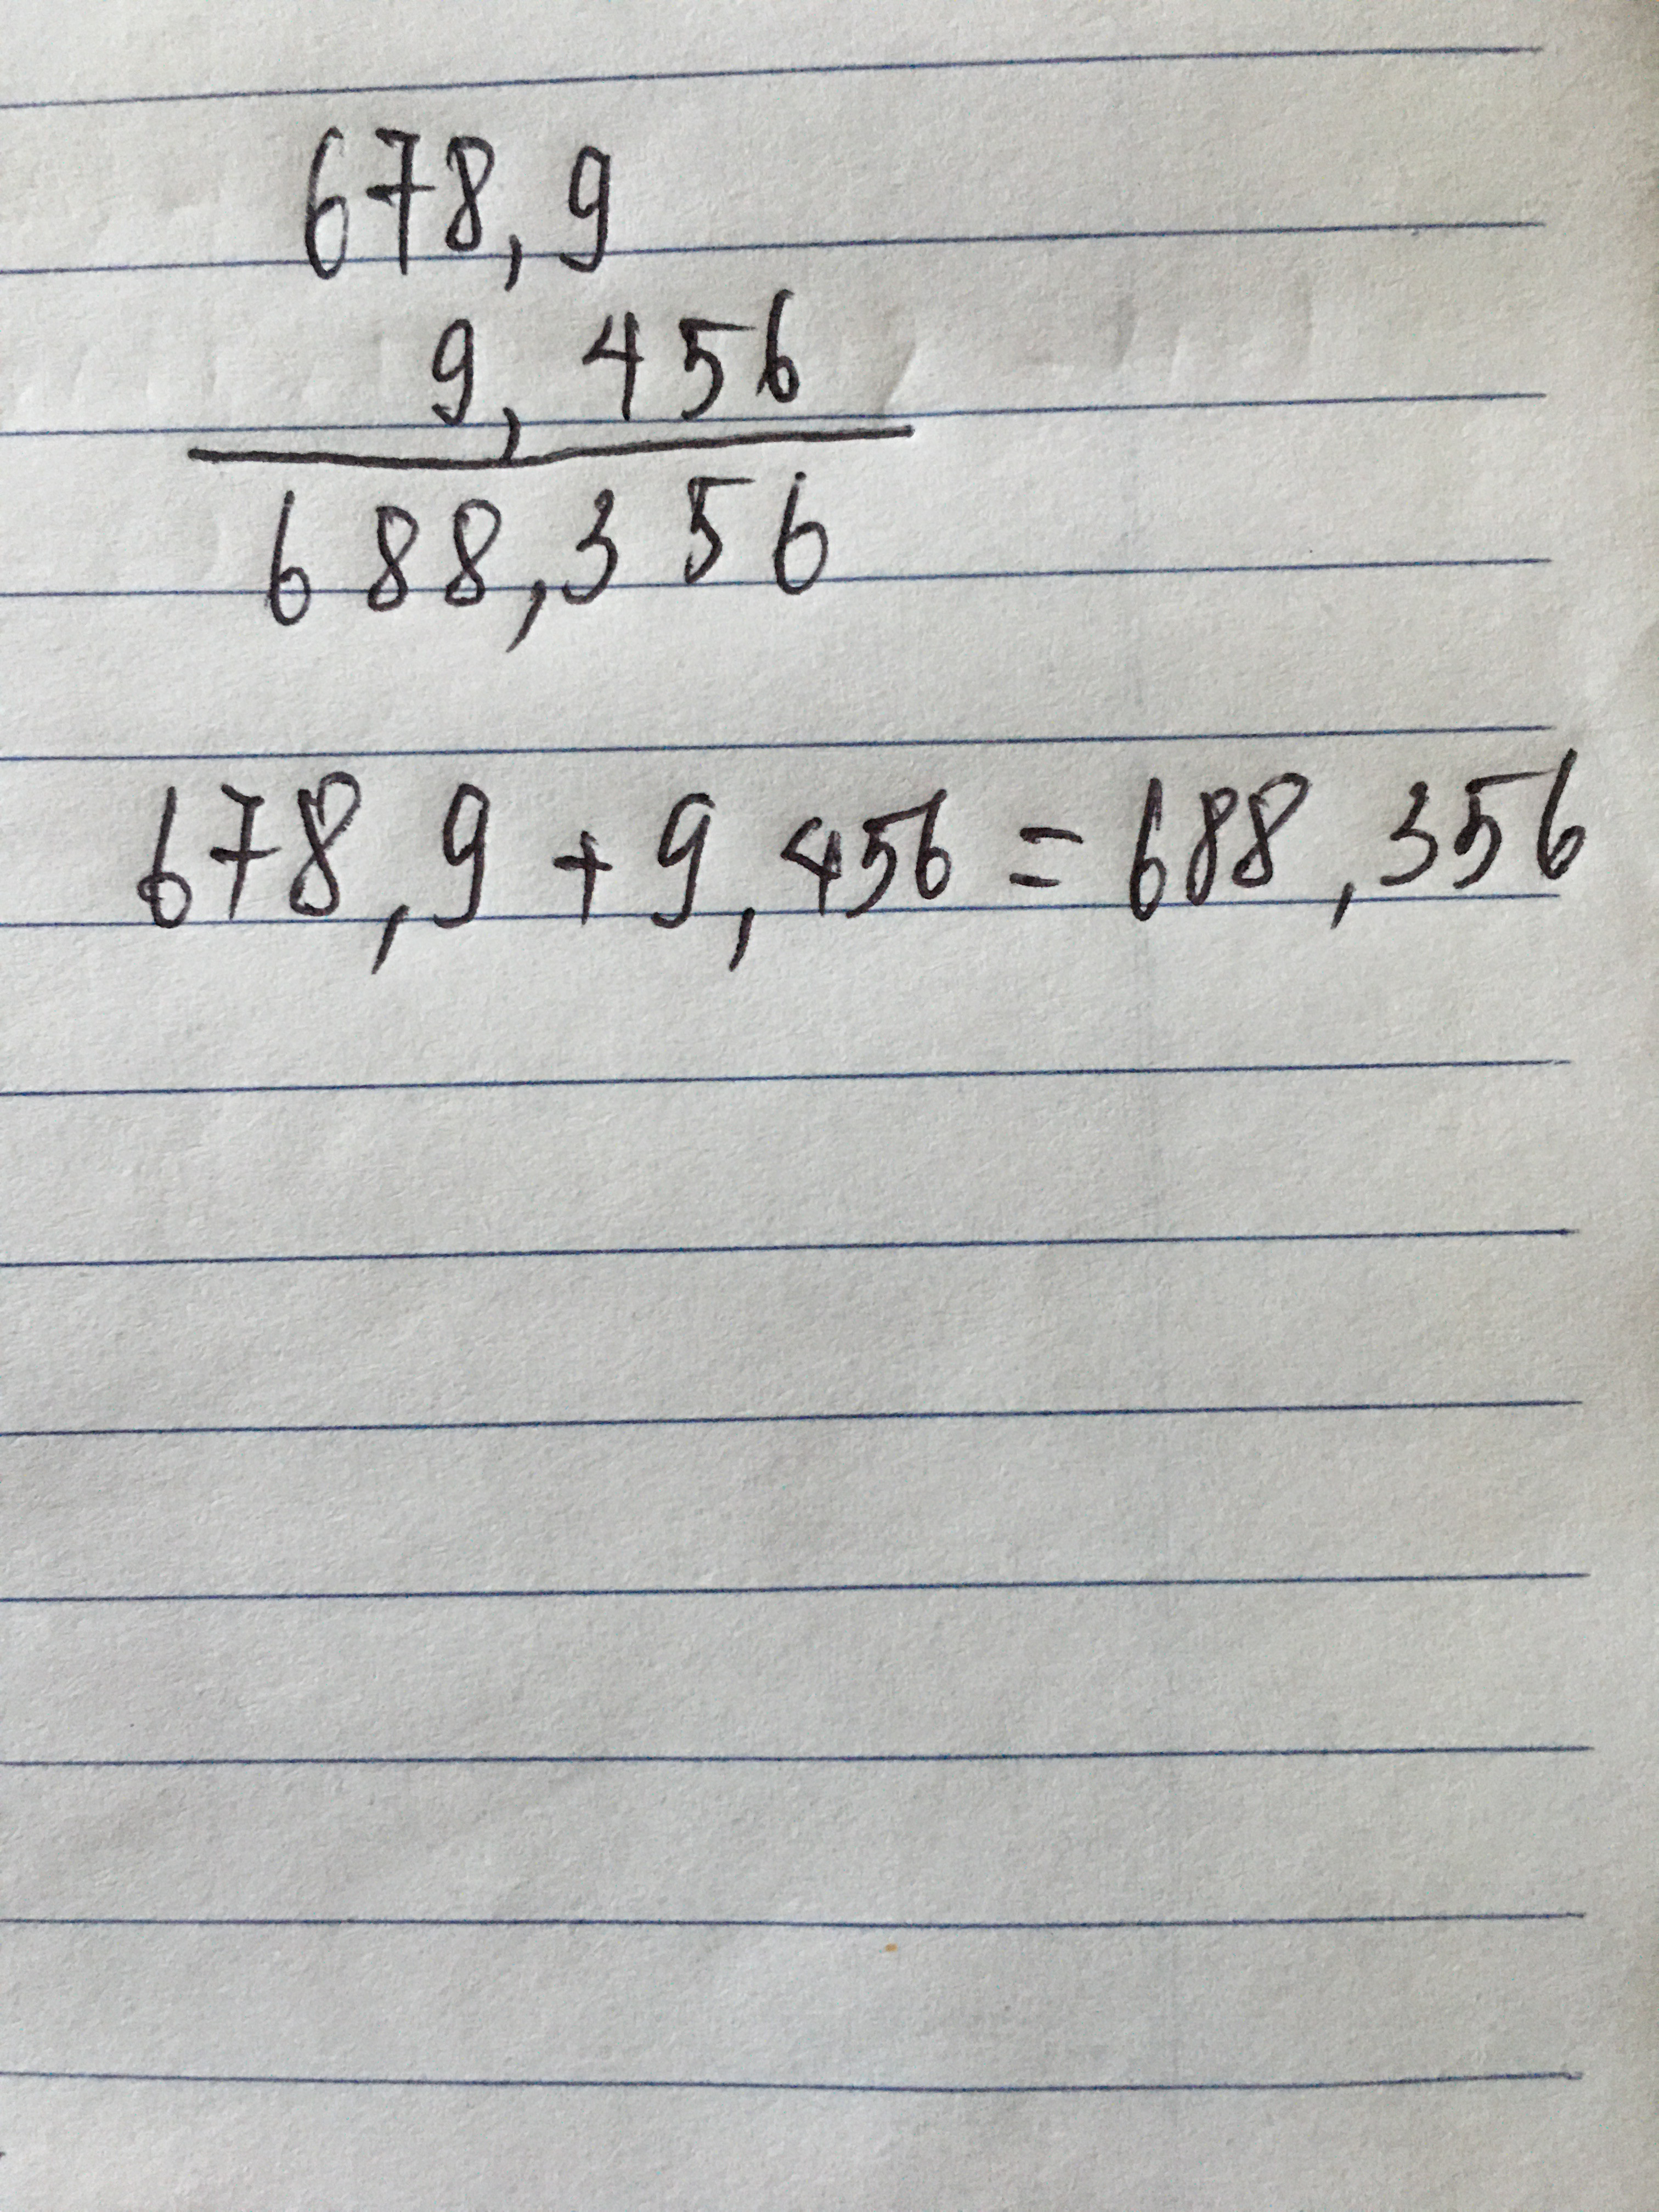 678,9
9,456
688,356
678,9 + 9,456 = 688,356